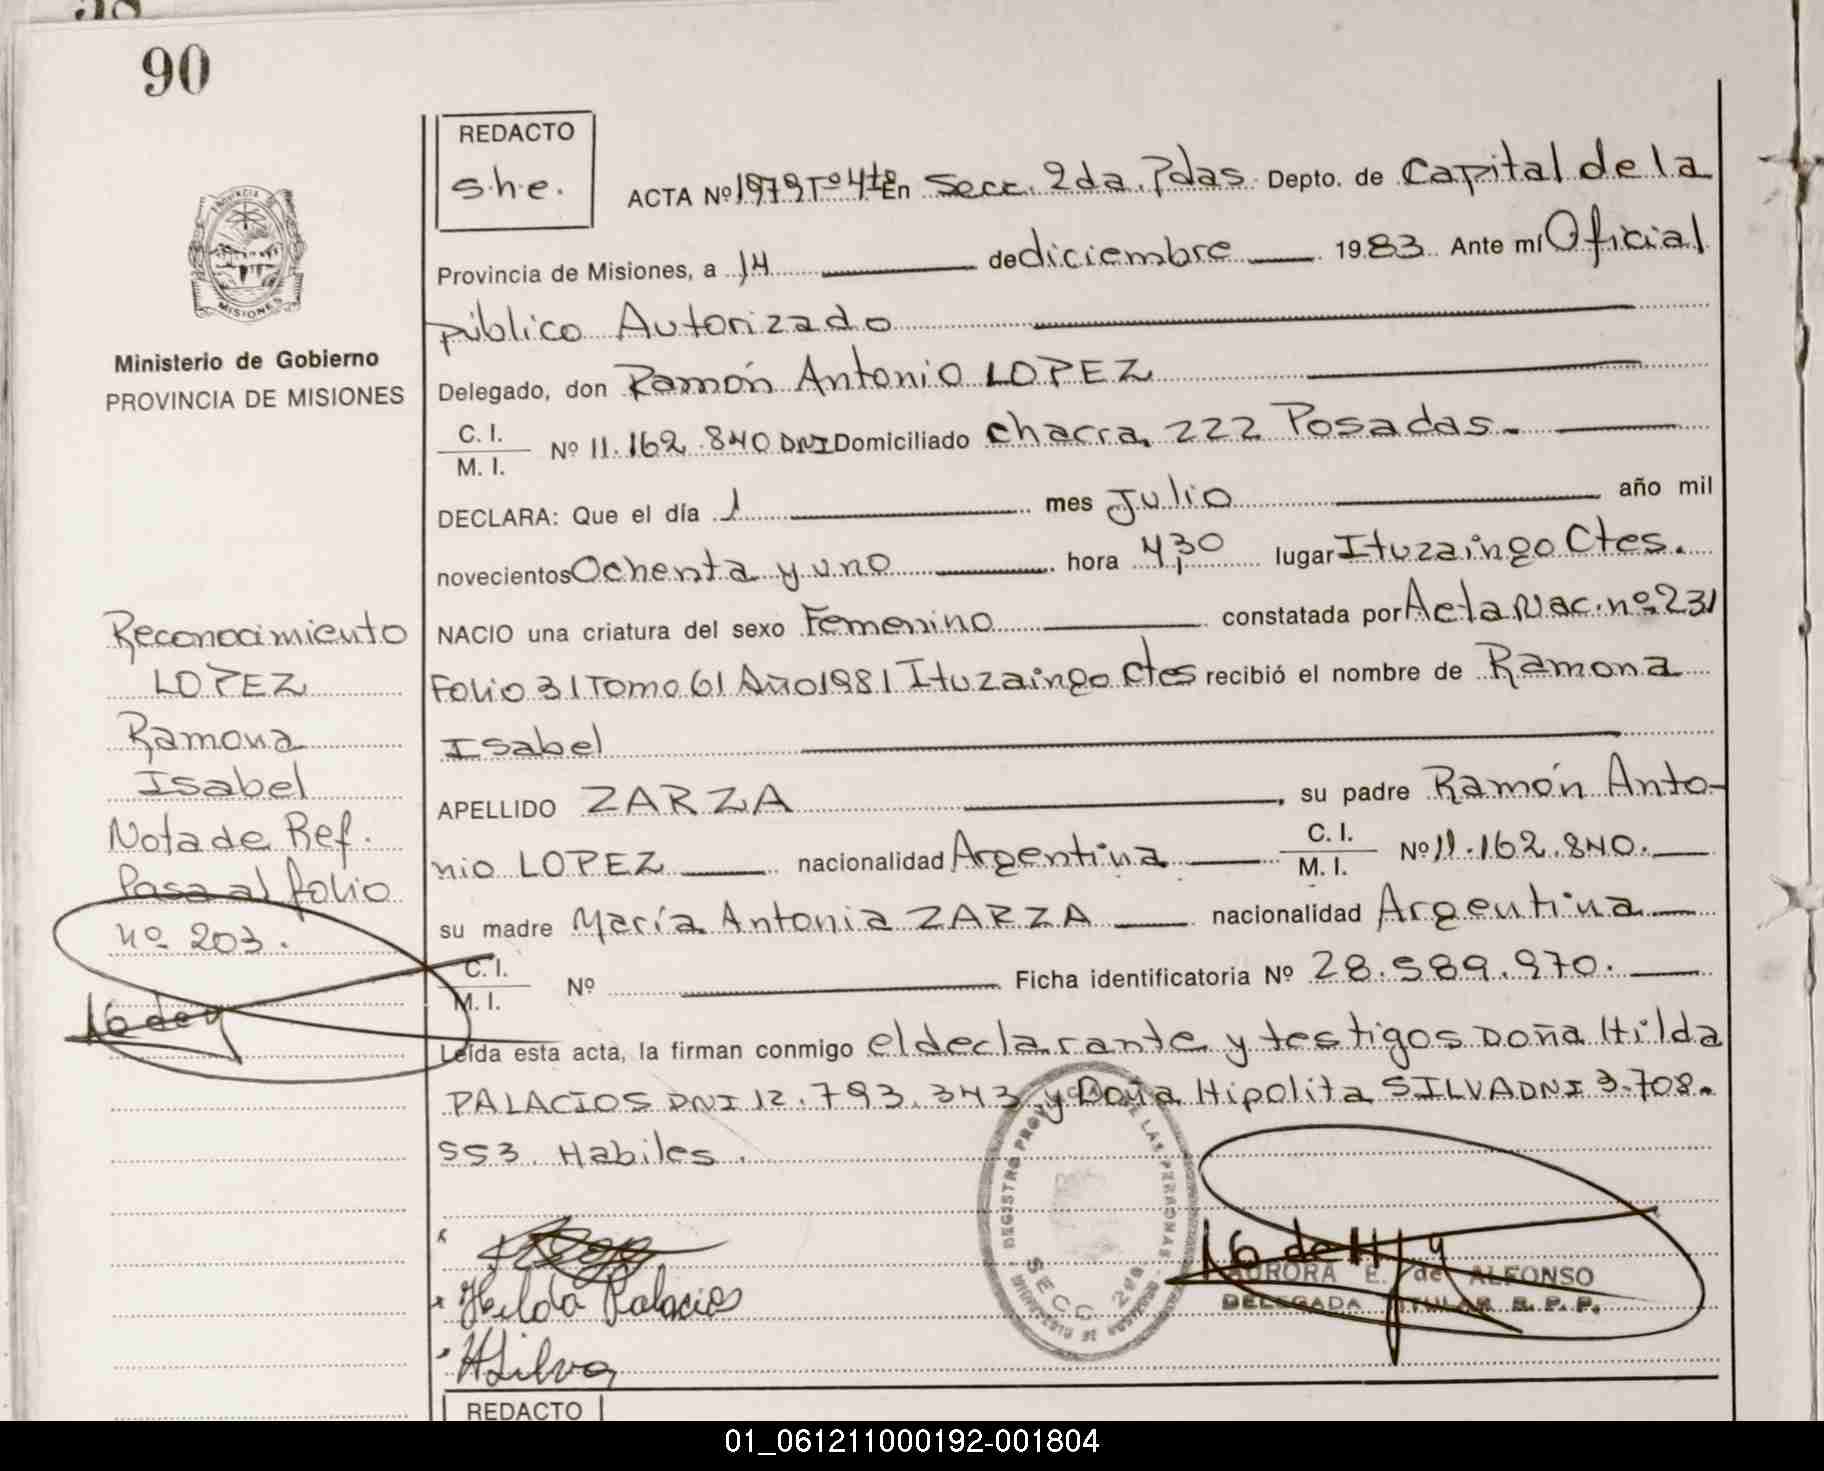 90
REDACTO
s.h.e.
ACTA Nº 1979 Tº 4tº En Secc. 2da. Pdas Depto. de Capital de la
Provincia de Misiones, a 14 de diciembre 1983. Ante mí Oficial
público Autorizado
Delegado, don Ramón Antonio LOPEZ
C. I.
M. I. Nº 11.162.840 DNI Domiciliado chacra 222 Posadas.
DECLARA: Que el día 1 mes Julio año mil
novecientos Ochenta y uno hora 4,30 lugar Ituzaingo Ctes.
NACIO una criatura del sexo Femenino constatada por Acta Nac. nº 231
Folio 31 Tomo 61 Año 1981 Ituzaingo Ctes recibió el nombre de Ramona
Isabel
APELLIDO ZARZA, su padre Ramón Anto-
nio LOPEZ nacionalidad Argentina C. I.
M. I. Nº 11.162.840.
su madre María Antonia ZARZA nacionalidad Argentina
C. I.
M. I. Nº Ficha identificatoria Nº 28.589.970.
Leída esta acta, la firman conmigo el declarante y testigos Doña Hilda
PALACIOS DNI 12.793.343 y Doña Hipolita SILVA DNI 3.708.
553. Habiles.
Hilda Palacios
HSilva
REGISTRO PROV DE LAS PERSONAS
SECC 2da
AURORA E. de ALFONSO
DELEGADA TITULAR R. P. P.
REDACTO
PROVINCIA DE
MISIONES
Ministerio de Gobierno
PROVINCIA DE MISIONES
Reconocimiento
LOPEZ
Ramona
Isabel
Nota de Ref.
Pasa al folio
nº 203.
01_061211000192-001804